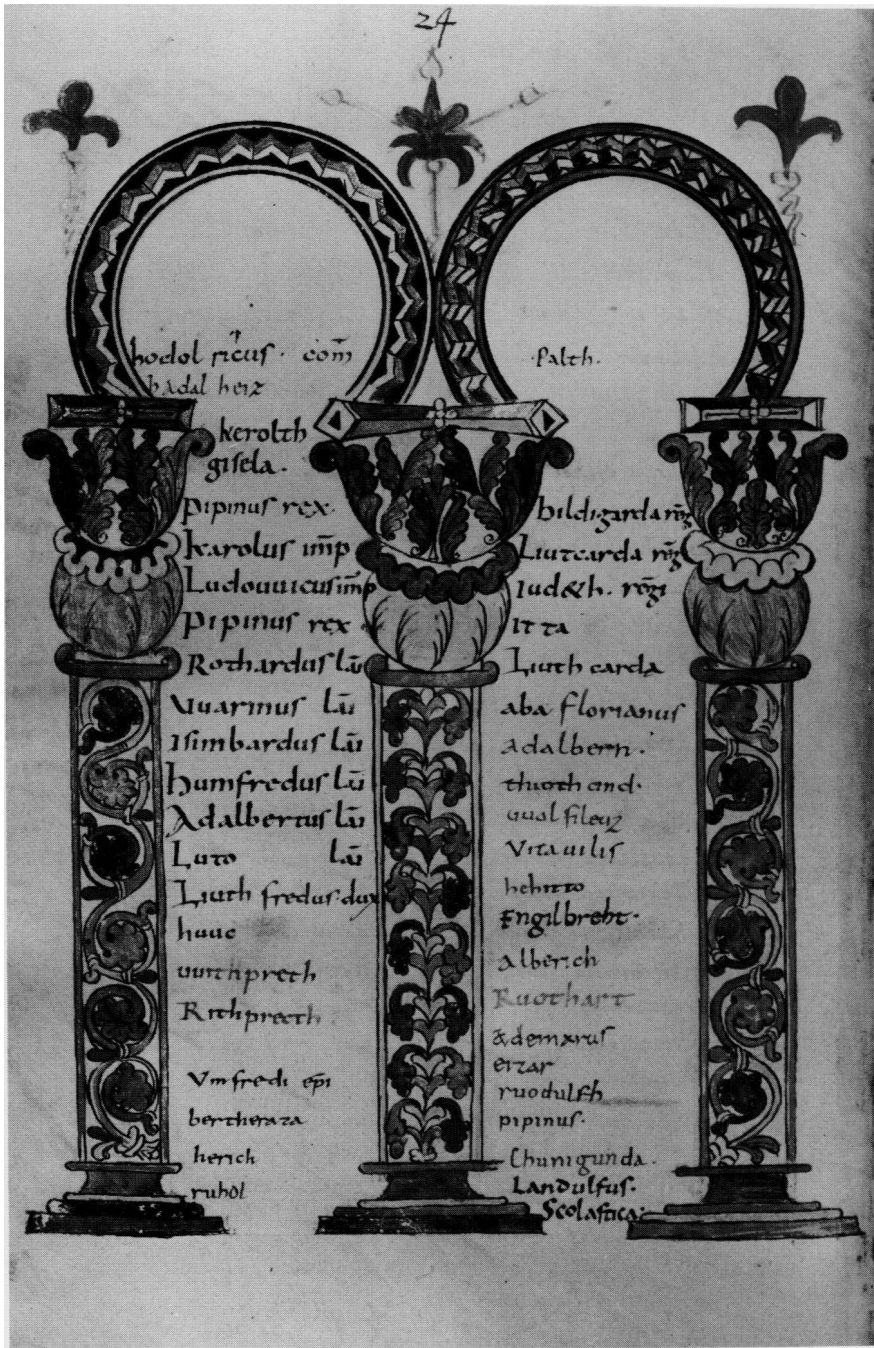 24
hodolricus · com̄
hadalheiz
kerolth
gisela ·
pipinus rex ·
karolus im̄p
Ludouuicus im̄p
pipinus rex
Rothardus lai̅
Vuarinus lai̅
Isimbardus lai̅
humfredus lai̅
Adalbertus lai̅
Luto lai̅
Liuthfredus · dux
huuc
uuithpreth
Rithpreth
Vmfredi ep̅i
bertherata
herich
ruhol
· palth ·
hildigarda rēg
Liutcarda rēg
Iud&h · rēgi
Itta
Liuthcarda
aba florianus
adalbern ·
thuoth
Vitauilis
hehitto
Engilbreht ·
alberich
Ruothart
&demarus
eizar
ruodulfh
pipinus ·
Chunigunda ·
Landulfus ·
Scolastica ·